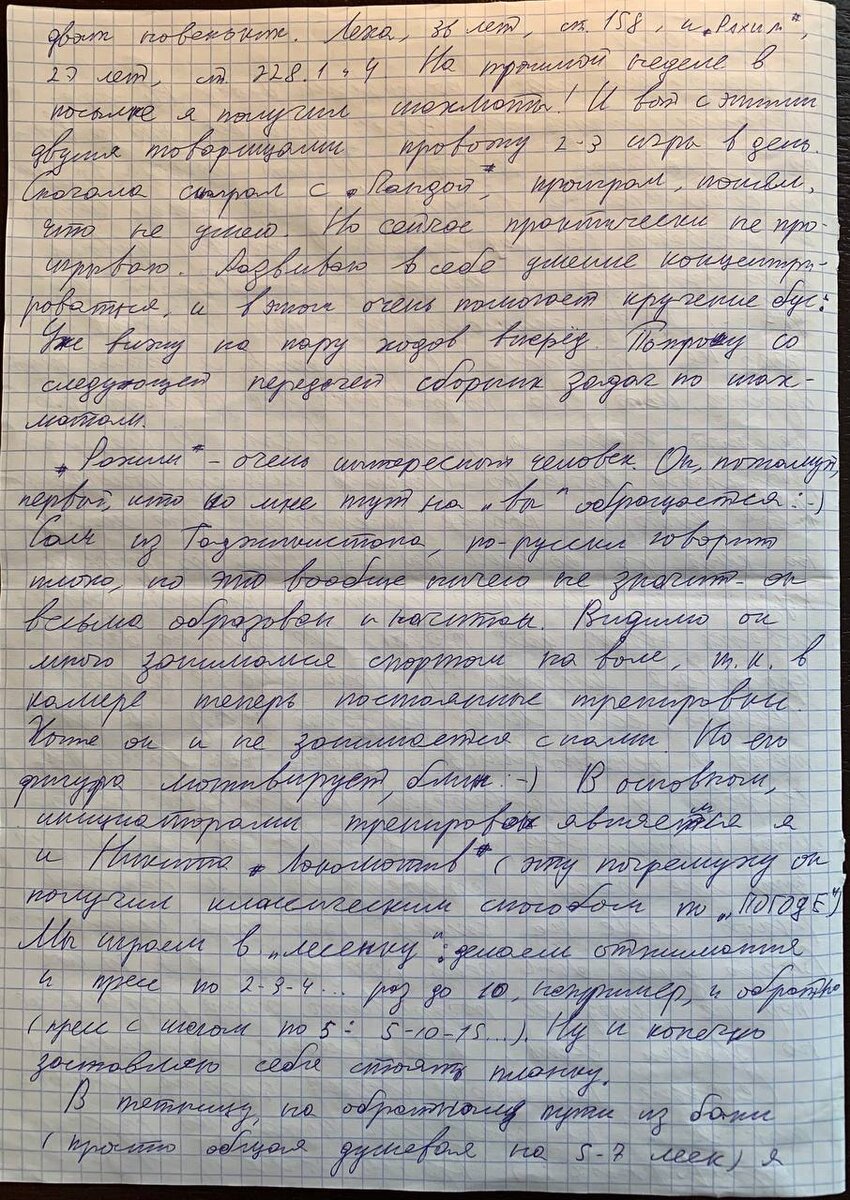 двух новеньких. Леха, 36 лет, ст. 158, и „Рахим",
27 лет, ст. 228.1 ч 4 На прошлой неделе в
посылке я получил шахматы! И вот с этими
двумя товарищами провожу 2-3 игры в день.
Сначала сыграл с „Пандой", проиграл, понял,
что не умею. Но сейчас практически не про-
игрываю. Развиваю в себе умение концентри-
роваться, и в этом очень помогает кручение бус.
Уже вижу на пару ходов вперёд. Попрошу со
следующей передачей сборник задач по шах-
матам.
„Рахим" - очень интересный человек. Он, пожалуй,
первый, кто ко мне тут на „вы" обращается :-)
Сам из Таджикистана, по-русски говорит
плохо, но это вообще ничего не значит - он
весьма образован и начитан. Видимо он
много занимался спортом на воле, т.к. в
камере теперь постоянные тренировки.
Хотя он и не занимается с нами. Но его
фигура мотивирует, блин :-) В основном,
инициаторами тренировок являемся я
и Никита „Локомотив" (эту погремуху он
получил классическим способом по „ПОГОДЕ")
Мы играем в „лесенку": делаем отжимания
и пресс по 2-3-4... раз до 10, например, и обратно
(пресс с шагом по 5: 5-10-15...). Ну и конечно
заставляю себя стоять планку.
В пятницу, на обратном пути из бани
(просто общая душевая на 5-7 леек) я